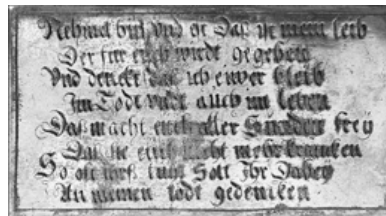 Nehmet hin vnd et Daß ist mein leib
Der für euch wirdt gegeben
Vnd denckt das ich ewer bleib
Im Todt vndt auch im leben
Das macht euch aller Sünden frey
Daß sie euch nicht mehr krancken
So oft ihrß thut Solt Ihr Dabey
An meinen todt gedencken